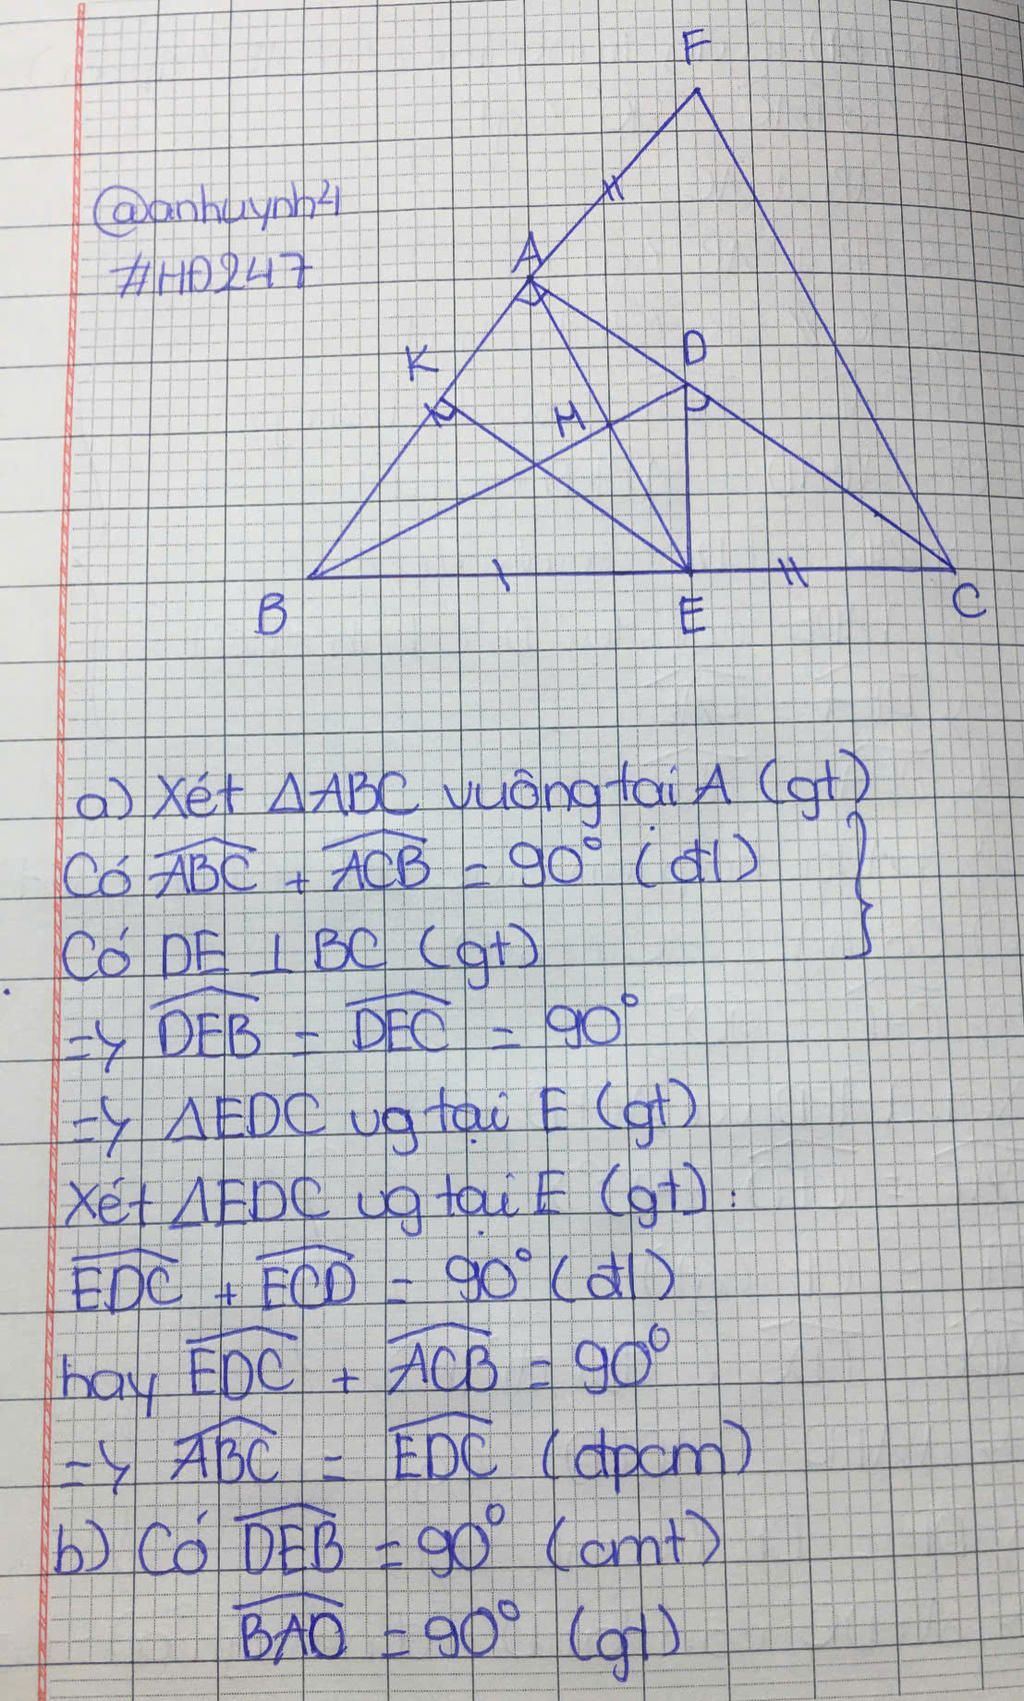 F
@anhuynh24
#HD247
A
K
D
H
B
E
C
a) Xét ΔABC vuông tại A (gt)
Có \widehat{ABC} + \widehat{ACB} = 90° (đl)
Có DE ⊥ BC (gt)
=> \widehat{DEB} = \widehat{DEC} = 90°
=> ΔEDC vg tại E (gt)
Xét ΔEDC vg tại E (gt):
\widehat{EDC} + \widehat{ECD} = 90° (đl)
hay \widehat{EDC} + \widehat{ACB} = 90°
=> \widehat{ABC} = \widehat{EDC} (đpcm)
b) Có \widehat{DEB} = 90° (cmt)
\widehat{BAD} = 90° (gt)